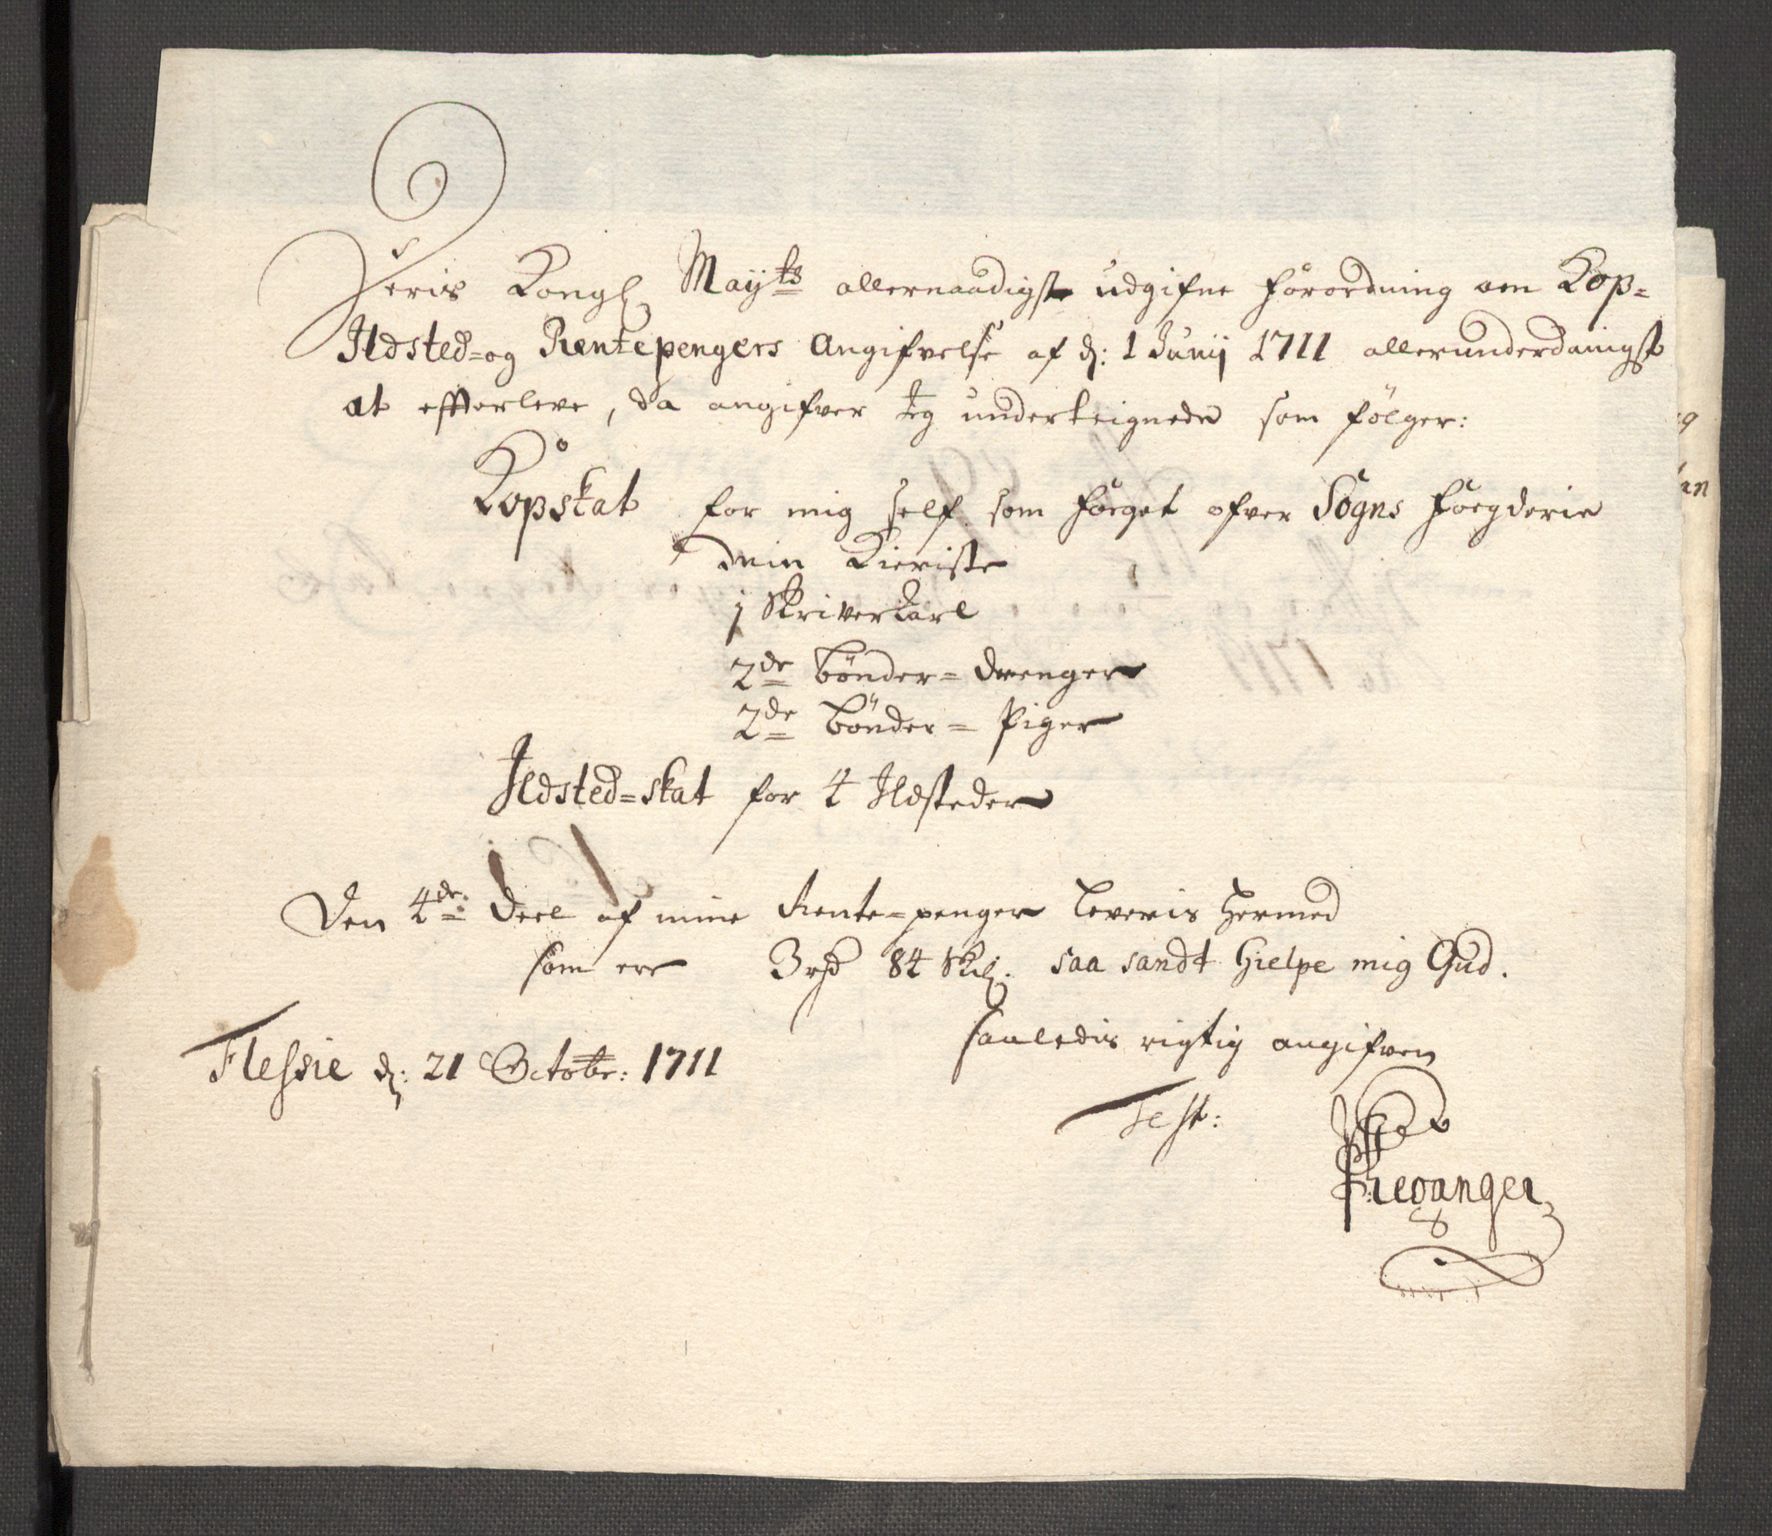 Deris Kongl May:ts allernaadigst udgifne Forordning om Kop=
Ildsted=og Rentepengers Angifvelse af d: 1 Junij 1711 allerunderdanigst
at efterleve, da angifver Jeg underteignede som følger:
Kopskat for mig self som Foeget ofver Sogns Foegderie
min Kieriste
1 Skriverkarl
2de bønder=drenger
2de bønder=Piger
Ildsted=skat for 4 Ildsteder
Den 4de: deel af mine Rente=penger leveris hermed
som ere 3 rd 84 Skil: saa sandt hielpe mig Gud.
saaledis rigtig angifven
Flessie d: 21 Octobr: 1711
Test: